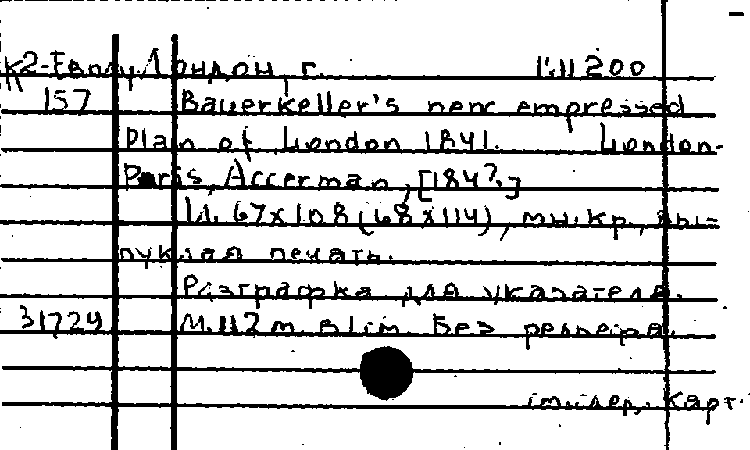 К2-Европ/Лондон, г. 1:11200
157 Bauerkeller's new empressed
Plan of London 1841. London-
Paris, Accerman, [184?.]
1 л. 67х108 (68х114), мн. кр., вы-
пуклая печать.
Разграфка для указателя.
31729 М. 112 м. в 1 см. Без рельефа.
Карт.